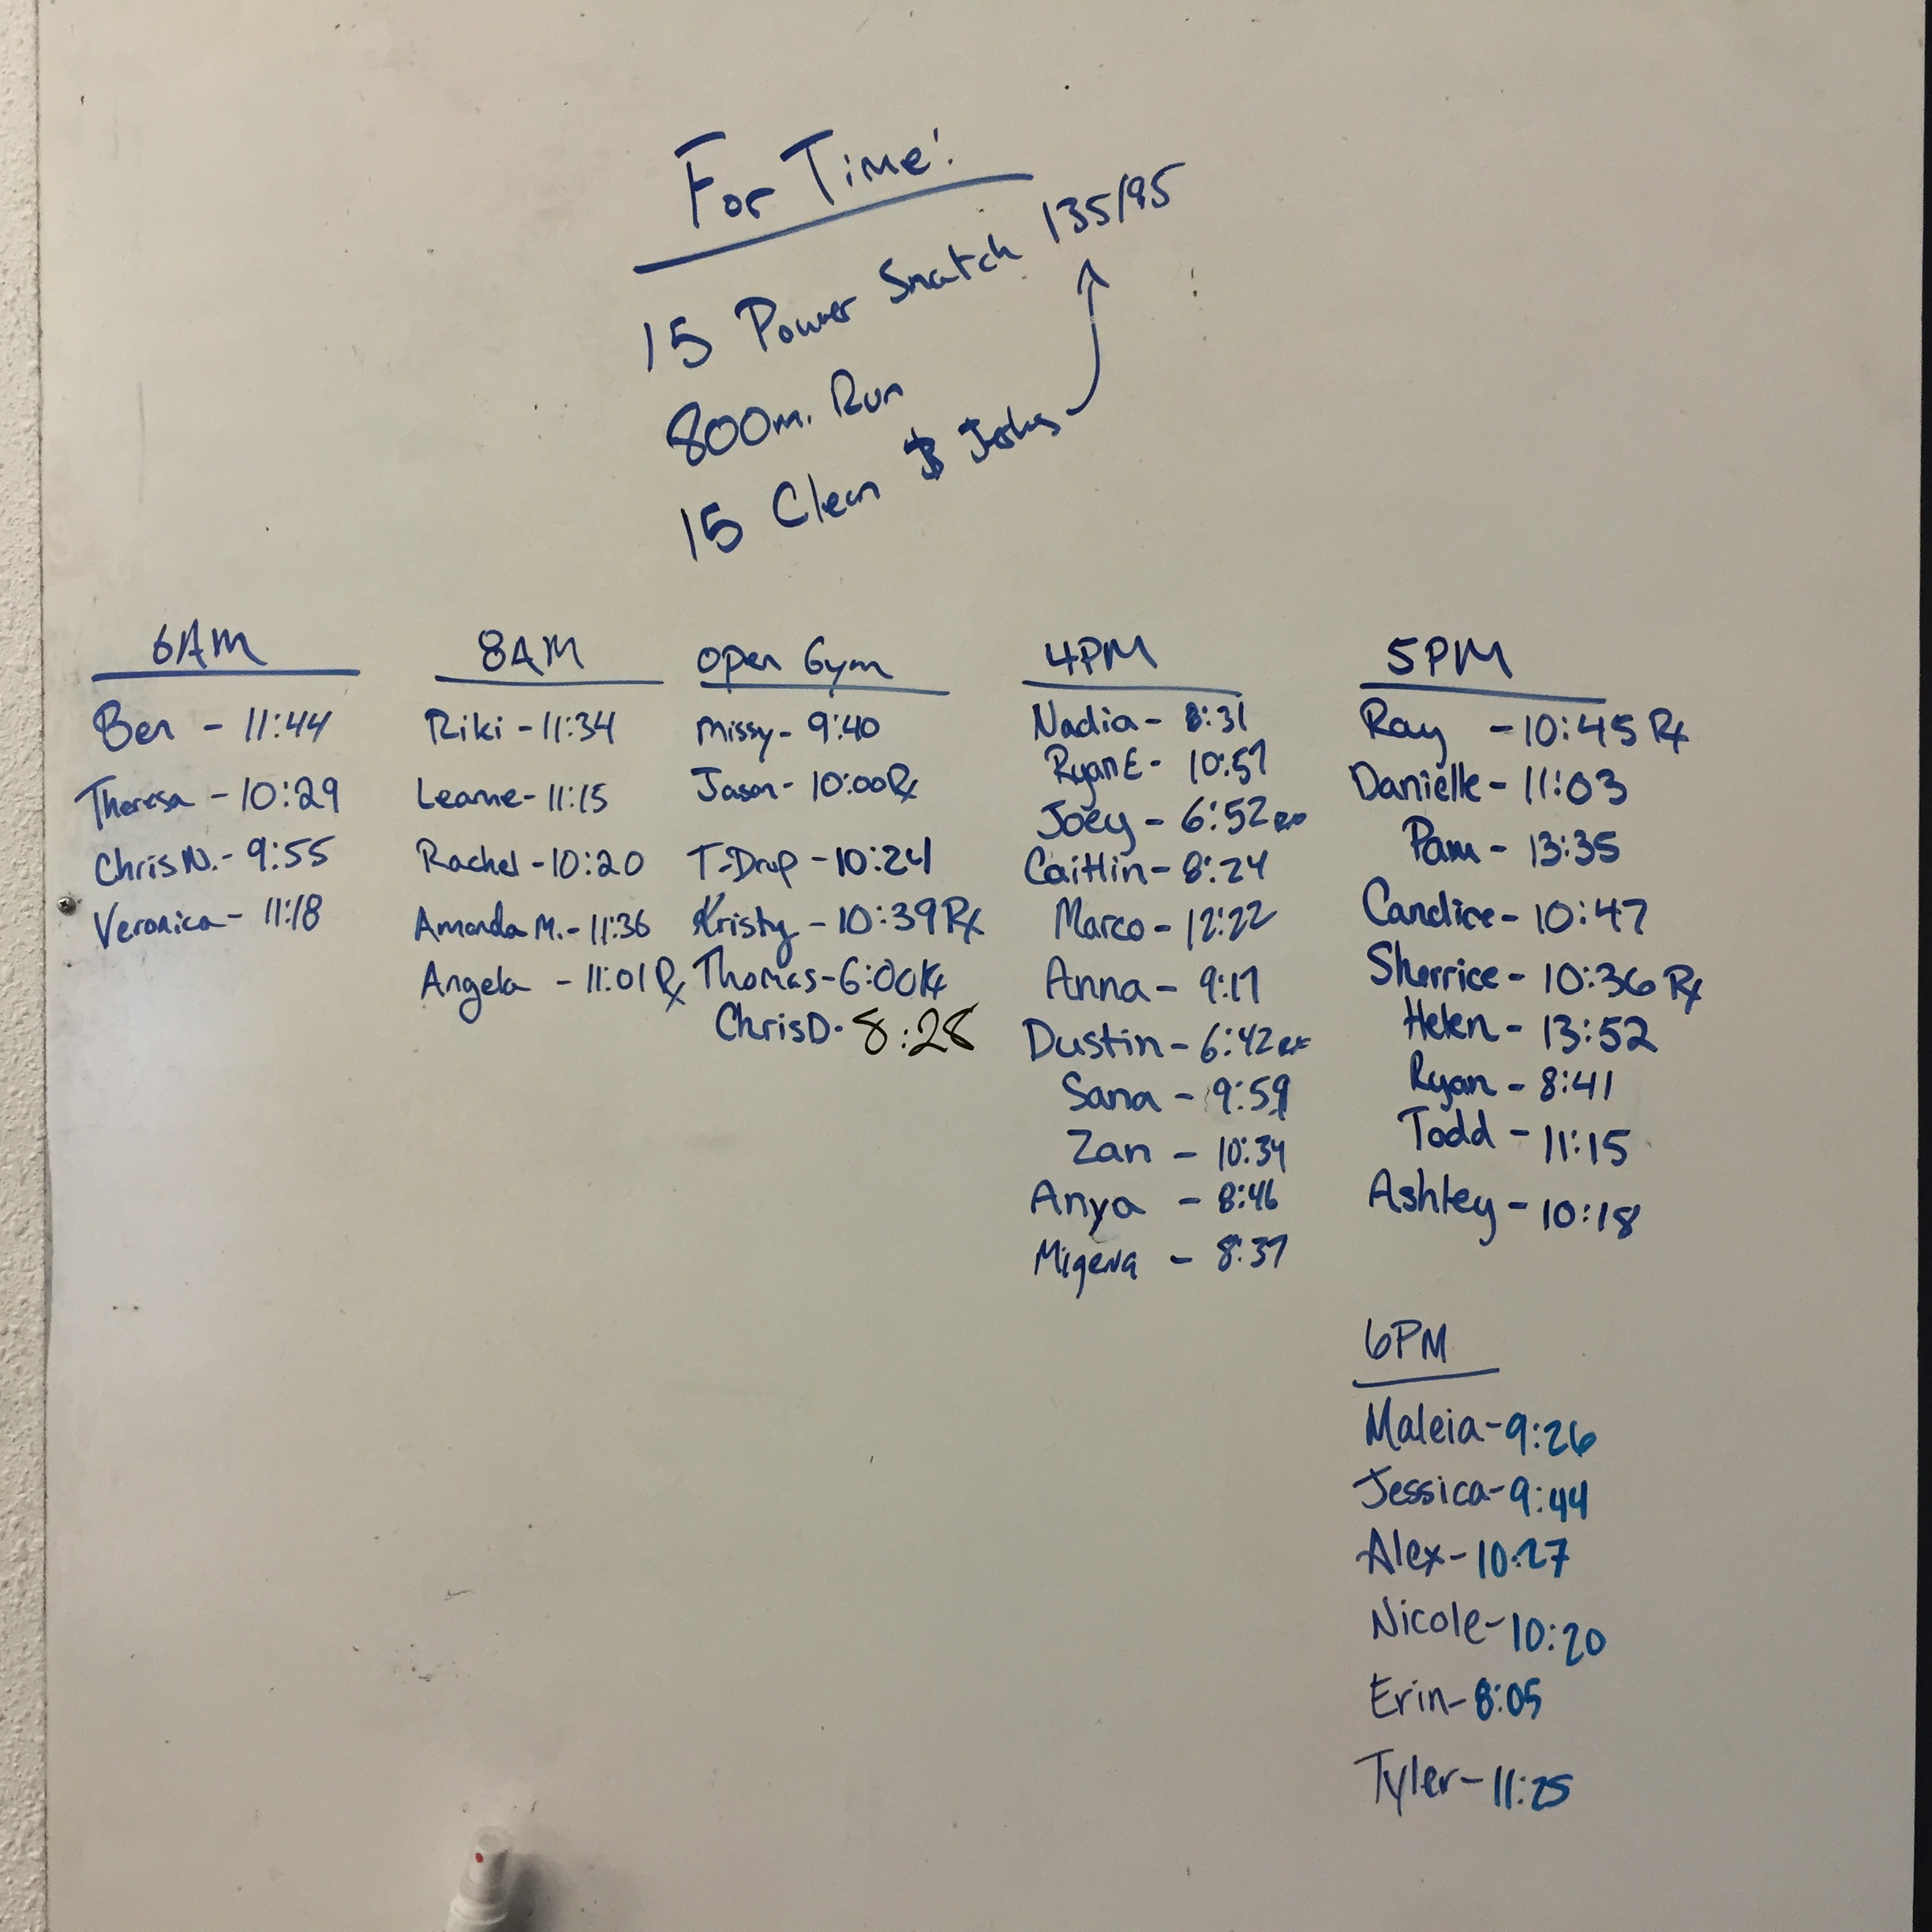 For Time:
15 Power Snatch 135/95
800m. Run
15 Clean & Jerks
6AM
Ben - 11:44
Theresa - 10:29
Chris N. - 9:55
Veronica - 11:18
8AM
Riki - 11:34
Leanne - 11:15
Rachel - 10:20
Amanda M. - 11:36
Angela - 11:01 Rx
Open Gym
Missy - 9:40
Jason - 10:00 Rx
T-Drop - 10:24
Kristy - 10:39 Rx
Thomas - 6:00 Rx
Chris D - 8:28
4PM
Nadia - 8:31
Ryan E - 10:57
Joey - 6:52 Rx
Caitlin - 8:24
Marco - 12:22
Anna - 9:17
Dustin - 6:42 Rx
Sana - 9:59
Zan - 10:34
Anya - 8:46
Migena - 8:37
5PM
Ray - 10:45 Rx
Danielle - 11:03
Pam - 13:35
Candice - 10:47
Sherrice - 10:36 Rx
Helen - 13:52
Ryan - 8:41
Todd - 11:15
Ashley - 10:18
6PM
Maleia - 9:26
Jessica - 9:44
Alex - 10:27
Nicole - 10:20
Erin - 8:05
Tyler - 11:25